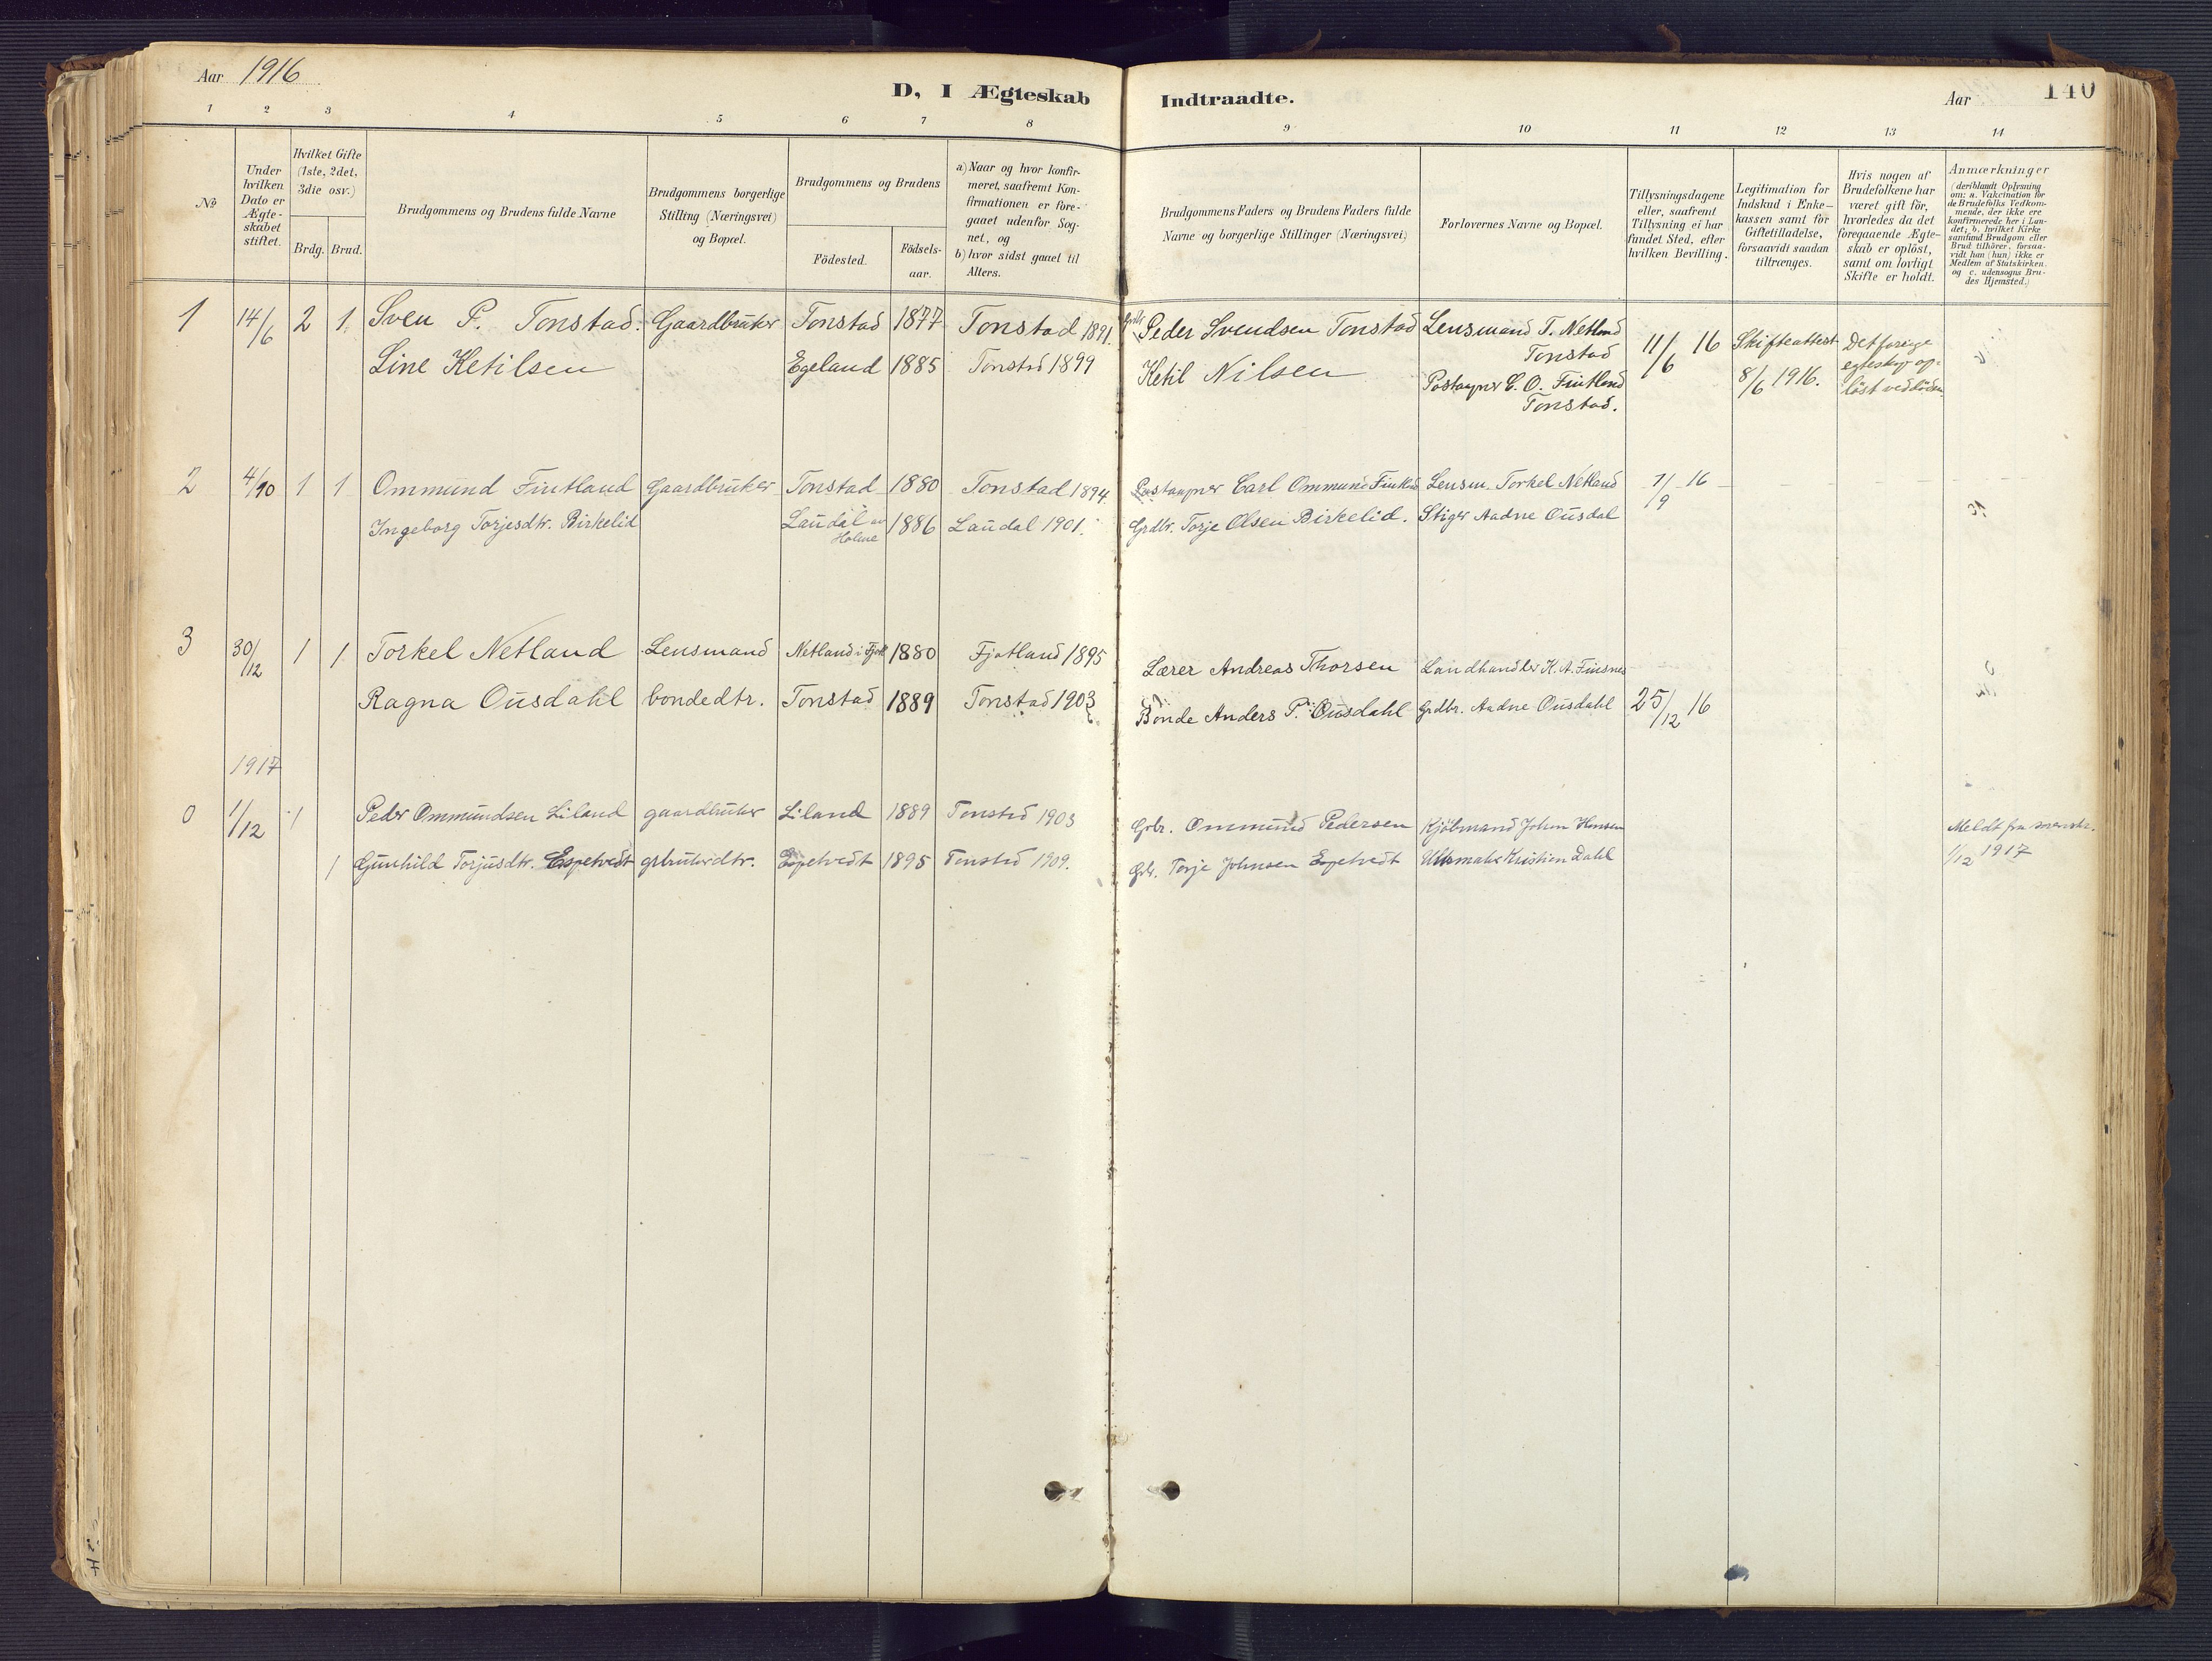 Aar 1916
D, I Ægteskab Indtraadte.
Aar
140
1 2 3 4 5 6 7 8 9 10 11 12 13 14
No
Under hvilken Dato er Ægteskabet stiftet.
Hvilket Gifte (1ste, 2det, 3die osv.)
Brdg. Brud.
Brudgommens og Brudens fulde Navne
Brudgommens borgerlige Stilling (Næringsvei) og Bopæl.
Brudgommens og Brudens
Födested.
Födsels-aar.
a) Naar og hvor konfir-
meret, saafremt Kon-
firmationen er fore-
gaaet udenfor Sog-
net, og
b) hvor sidst gaaet til
Alters.
Brudgommens Faders og Brudens Faders fulde
Navne og borgerlige Stillinger (Næringsvei)
Forlovernes Navne og Bopæl.
Tillysningsdagene
eller, saafremt
Tillysning ei har
fundet Sted, efter
hvilken Bevilling.
Legitimation for
Indskud i Enke-
kassen samt for
Giftetilladelse,
forsaavidt saadan
tiltrænges.
Hvis nogen af
Brudefolkene har
været gift för,
hvorledes da det
foregaaende Ægte-
skab er oplöst,
samt om lovligt
Skifte er holdt.
Anmærkninger
(deriblandt Oplysning
om: a. Vakcination for
de Brudefolks Vedkom-
mende, der ikke ere
konfirmerede her i Lan-
det; b. hvilket Kirke
samfund Brudgom eller
Brud tilhörer, forsaa-
vidt han (hun) ikke er
Medlem af Statskirken.
og c. udensogns Bru-
des Hjemsted.)
1 14/6 2 1 Sven P. Tonstad. Gaardbruker Tonstad 1877 Tonstad 1891. Peder Svendsen Tonstad Lensmand T. Netland
Tonstad 11/6 16 Skifteattest 8/6 1916. Det forrige
egteskap op-
löst ved döden
Line Ketilsen Egeland 1885 Tonstad 1899 Ketil Nilsen Postaapner C. O. Fintland
Tonstad.
2 4/10 1 1 Ommund Fintland Gaardbruker Tonstad 1880 Tonstad 1894. Postaapner Carl Ommund Fintland Lensm. Torkel Netland /9 16
Ingeborg Torjesdtr. Birkelid Laudal
Holme 1886 Laudal 1901. Grdbr. Torje Olsen Birkelid. Stiger Aadne Ousdal
3 30/12 1 1 Torkel Netland Lensmand Netland i Fjotl 1880 Fjotland 1895 Lærer Andreas Thorsen Landhandler K. A. Finsnes
Ragna Ousdahl bondedtr. Tonstad 1889 Tonstad 1903 Bonde Anders P. Ousdahl Grdbr. Aadne Ousdahl 25/12 16
1917
0 1/12 1 Peder Ommundsen Liland gaardbruker Liland 1889 Tonstad 1903 Grbr. Ommund Pedersen Kjöbmand Johan Hansen Meldt fra sorenskr.
1/12 1917
1 Gunhild Torjusdtr. Espetvedt grbrukerdtr. Espetvedt 1895 Tonstad 1909. Grbr. Torje Johnsen Espetvedt Kristian Dahl